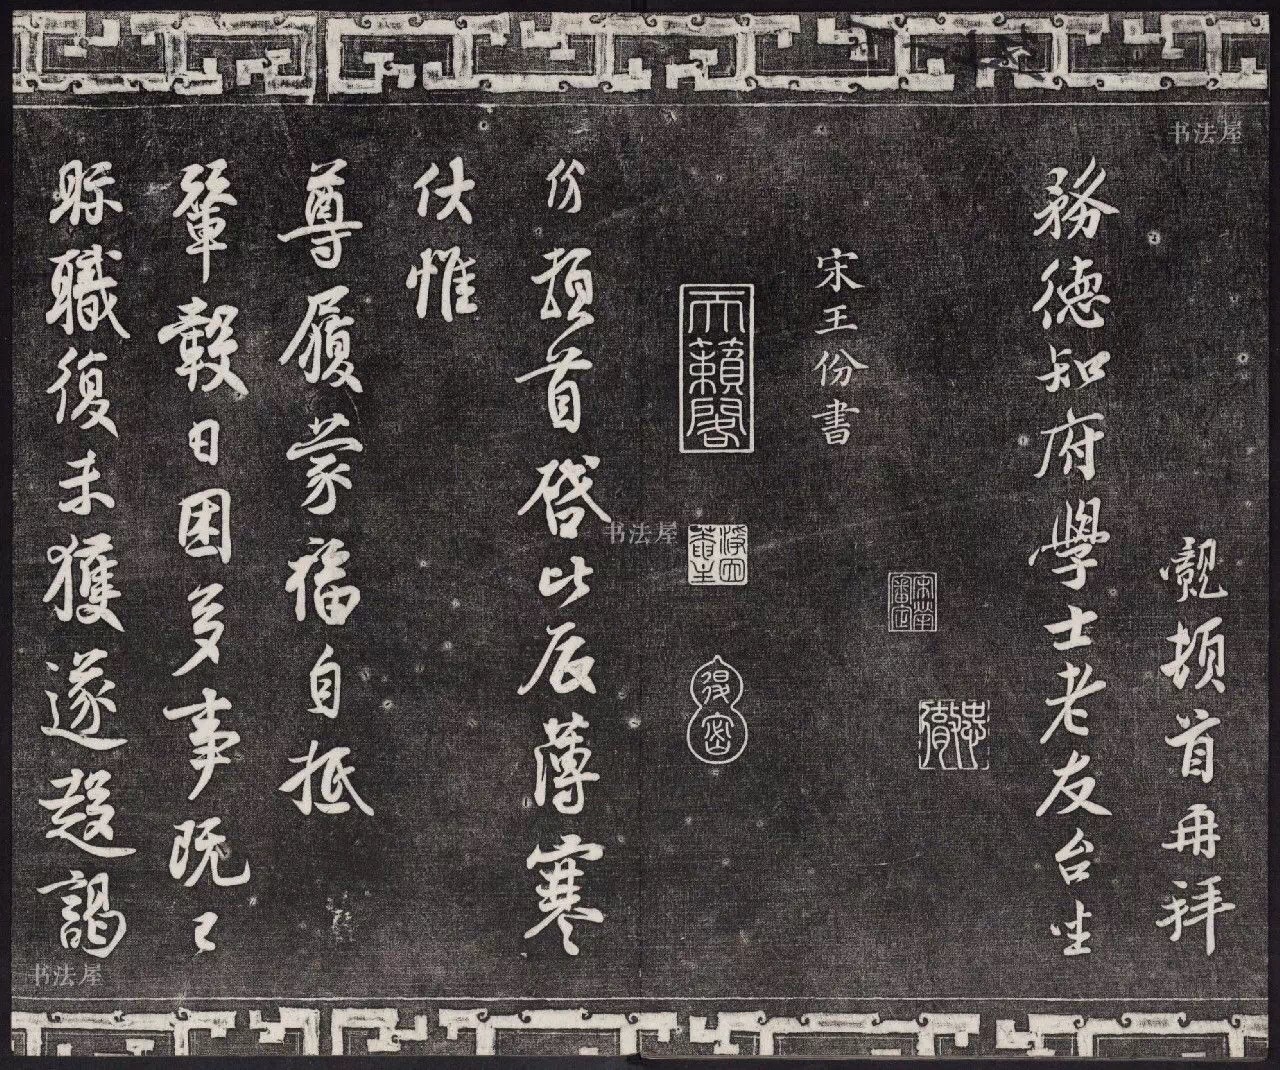 觌頓首再拜
務德知府學士老友台坐
宋王份書
天籟閣
份頓首啓比辰薄寒
伏惟
尊履蒙福自抵
輦轂日困多事既已
縣職復未獲遂趍謁
书法屋
书法屋
书法屋